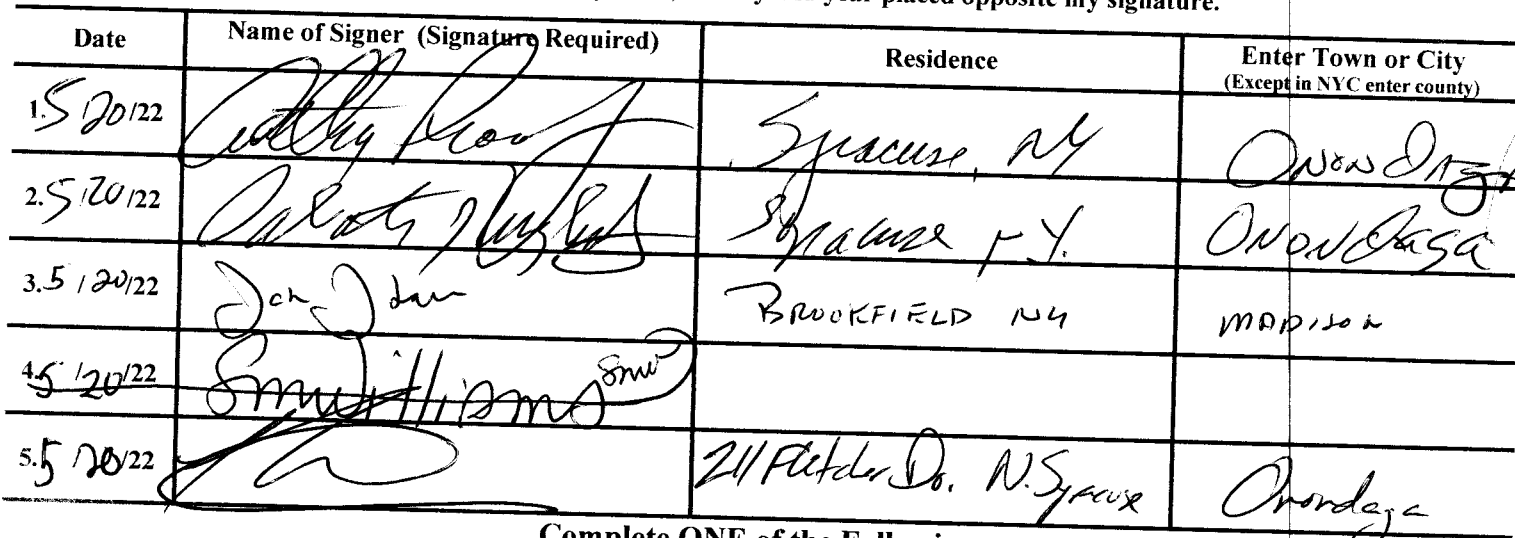 placed opposite my signature.
Date Name of Signer (Signature Required) Residence Enter Town or City
(Except in NYC enter county)
1. 5/20/22 Syracuse, NY Onondaga
2. 5/20/22 Syracuse N.Y. Onondaga
3. 5/20/22 BROOKFIELD NY MADISON
4. 5/20/22 SmWilliams smw
5. 5/20/22 211 Fletcher Dr. N. Syracuse Onondaga
Complete ONE of the